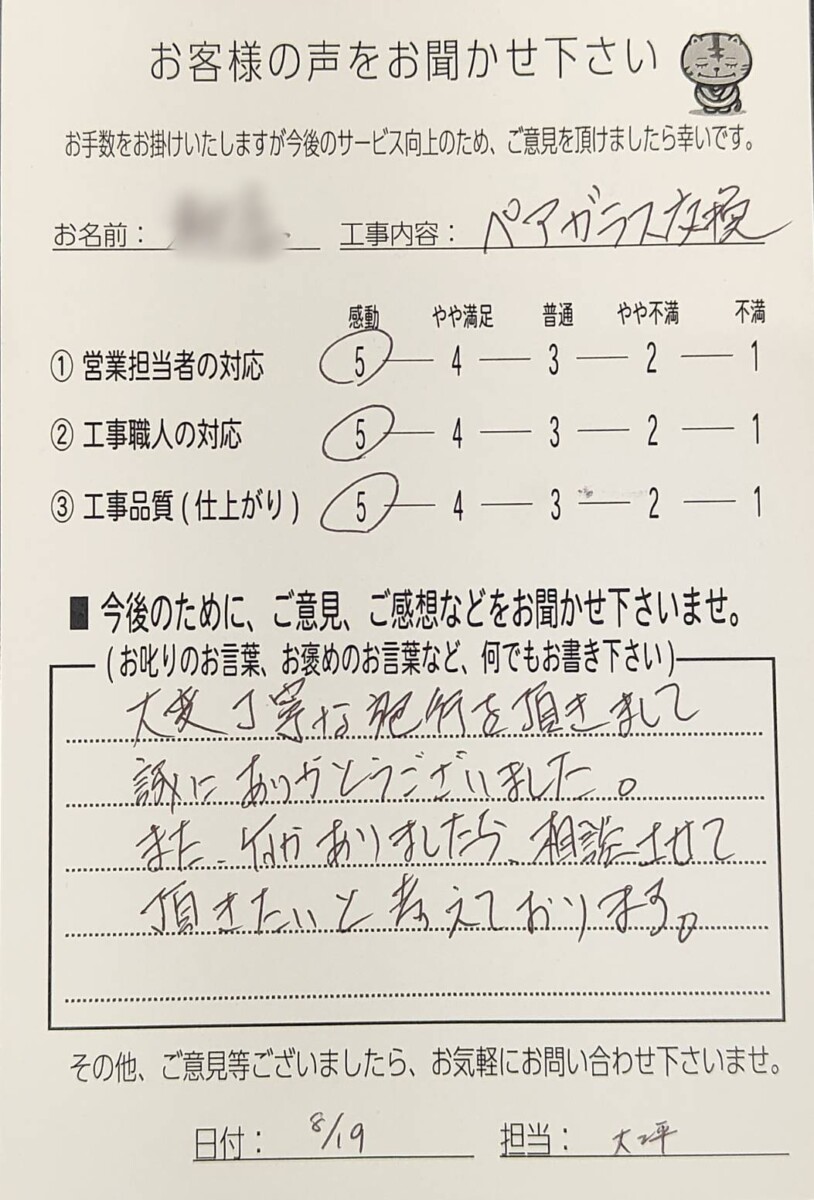 お客様の声をお聞かせ下さい
お手数をお掛けいたしますが今後のサービス向上のため、ご意見を頂けましたら幸いです。
お名前： 工事内容： ペアガラス交換
感動 やや満足 普通 やや不満 不満
① 営業担当者の対応 5 ― 4 ― 3 ― 2 ― 1
② 工事職人の対応 5 ― 4 ― 3 ― 2 ― 1
③ 工事品質 ( 仕上がり ) 5 ― 4 ― 3 ― 2 ― 1
■ 今後のために、ご意見、ご感想などをお聞かせ下さいませ。
( お叱りのお言葉、お褒めのお言葉など、何でもお書き下さい )
大変丁寧な施行を頂きまして
誠にありがとうございました。
また、何かありましたら、相談させて
頂きたいと考えております。
その他、ご意見等ございましたら、お気軽にお問い合わせ下さいませ。
日付： 8/19 担当： 大坪